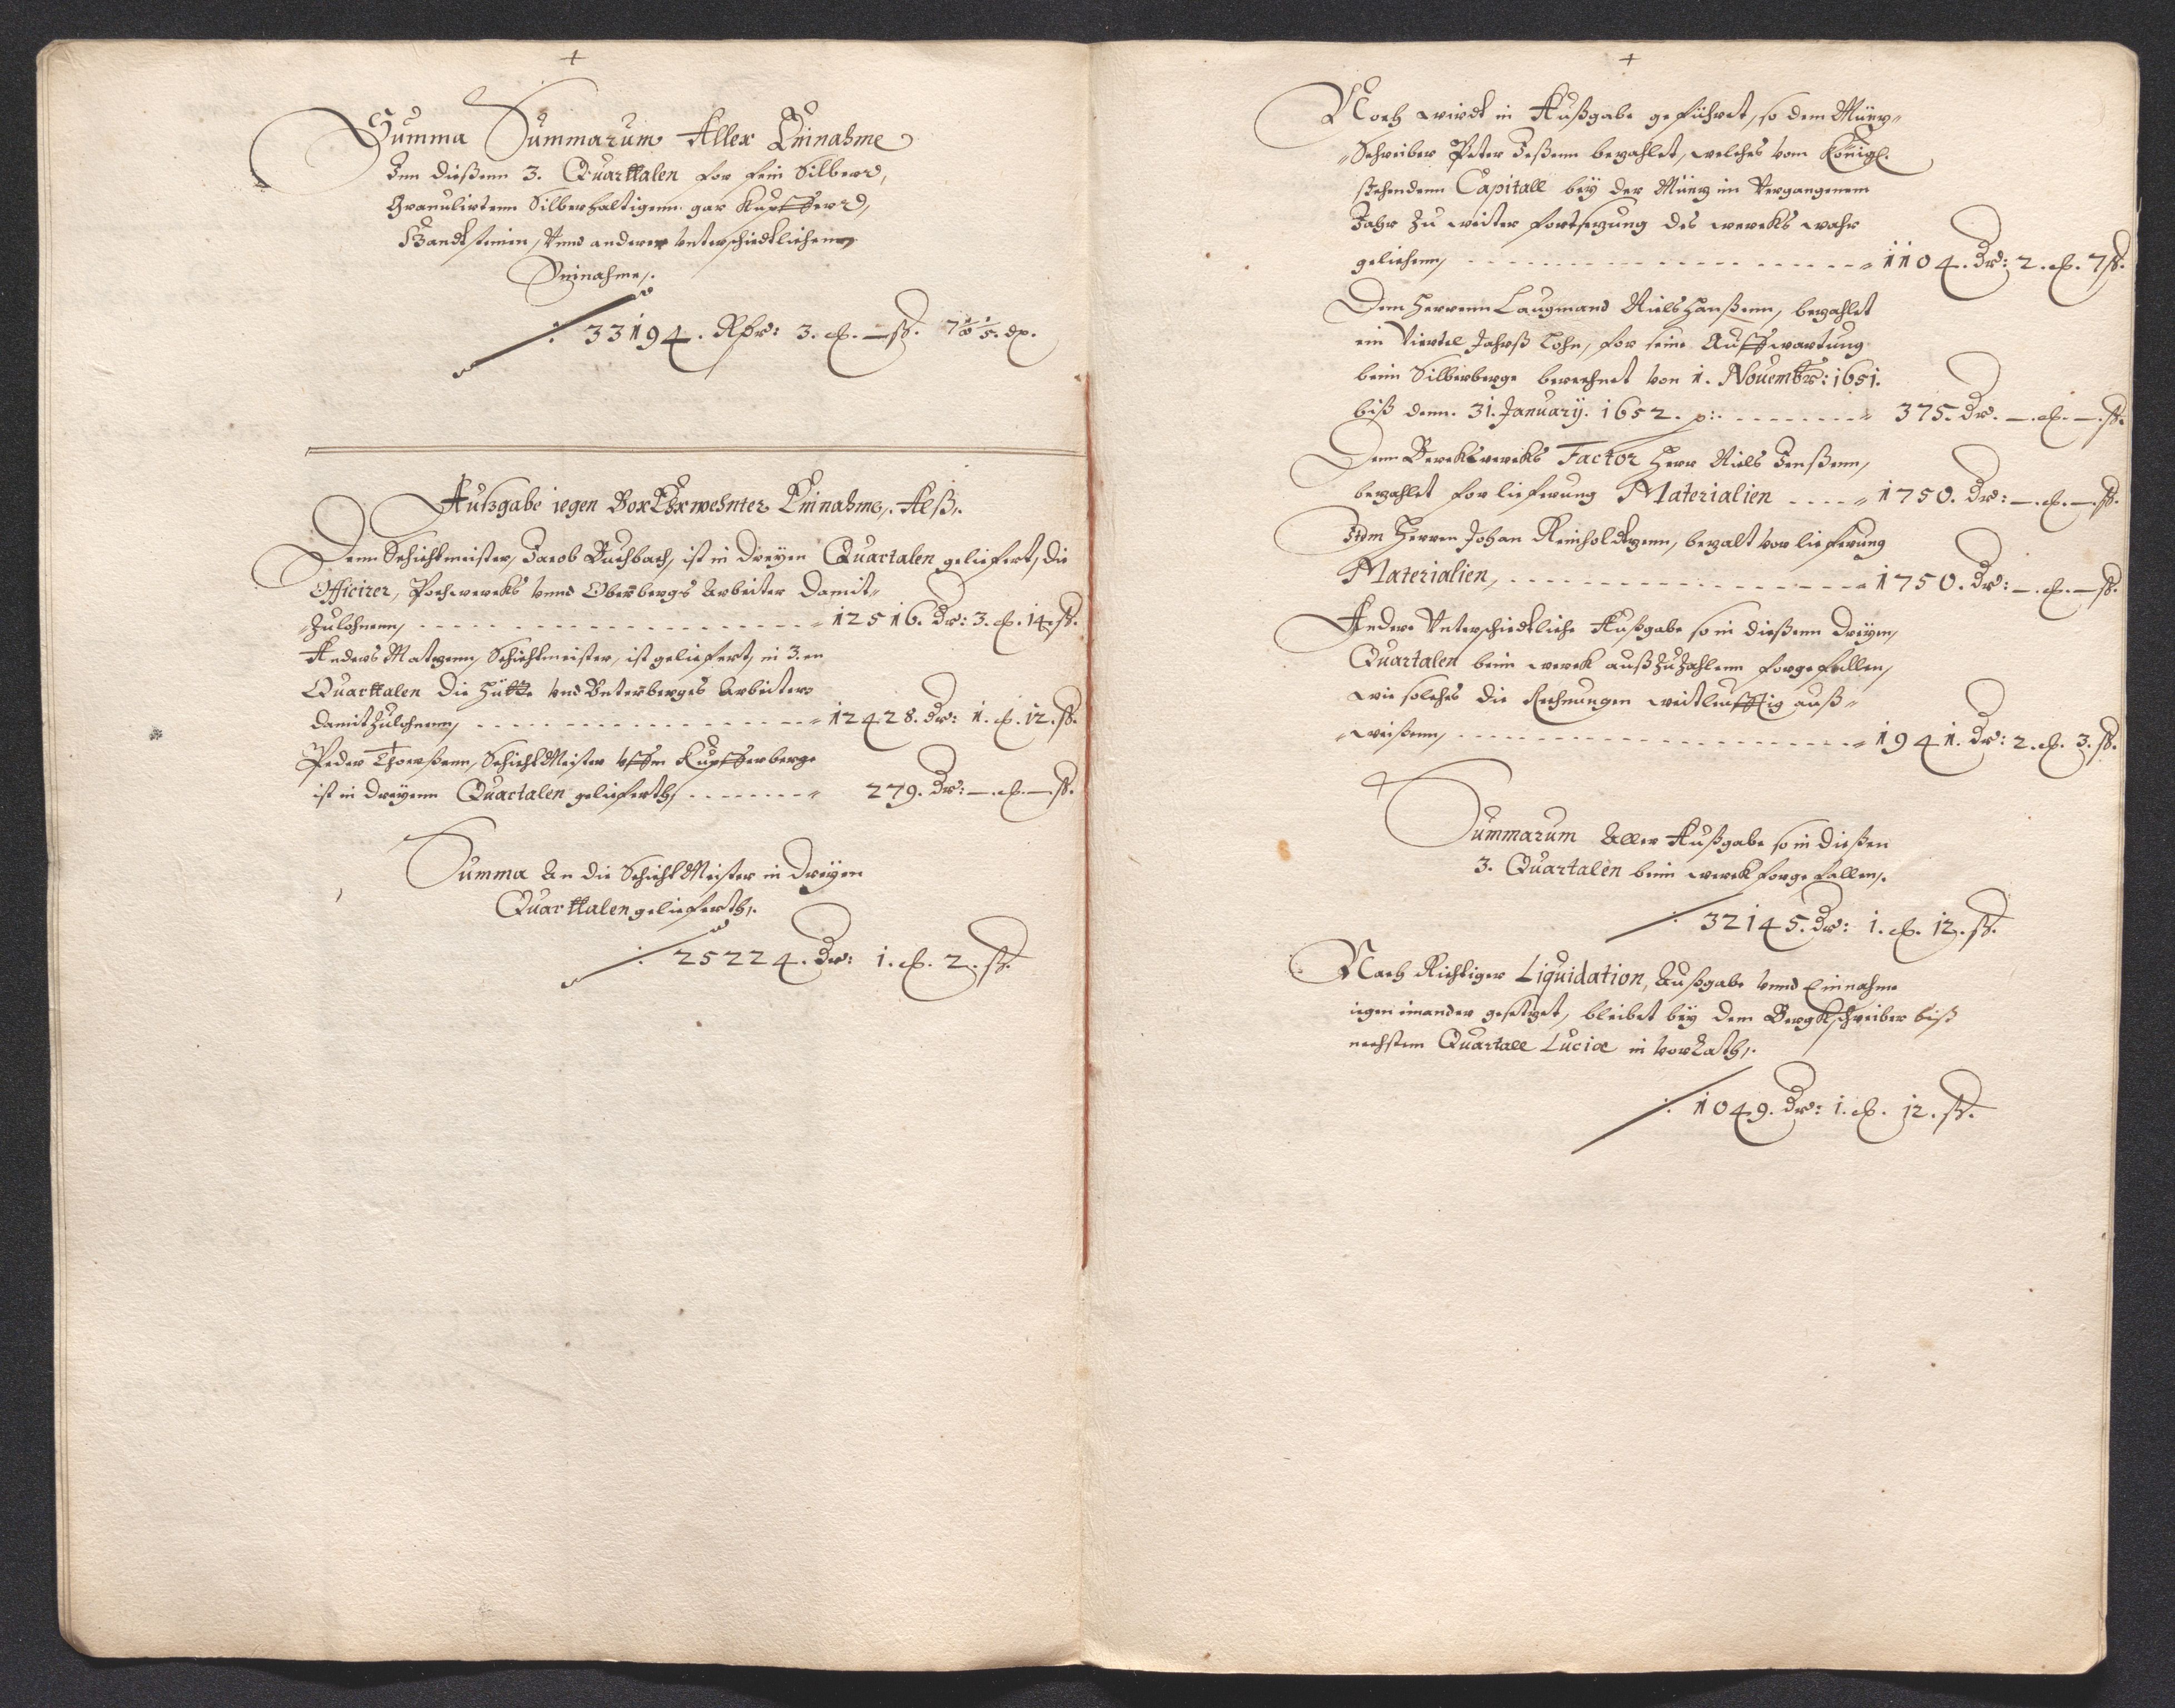 +
Summa Summarum Aller Einahme
Inn dießenn 3. Quarttalen for fein Silber,
Granulirtenn Silberhaltigenn gar Kupffer,
Handtsteinen, Vnnd anderer Unterschiedtlichenn
Einahme,.
33194. Rdr: 3. . — ß.
Außgabe iegen Vor Erwehnter Einahme,. Alß,.
Denn Schichtmeister, Jacob Buchbach, ist in dreyen Quartalen geliefert, die
Officirer, Pochwercks vnnd Oberbergs Arbeiter damit
Zulohnenn, 12516. Dr: 3. . 14. ß.
Anders Matzenn, Schichtmeister, ist geliefert, in 3. en
Quarttalen die Hütte vnd Unterberges Arbeiters
damit Zulohnenn, 12428. Dr: 1. . 12. ß.
Peder Schichtmeister vffm Kupfferberge
ist in dreyenn Quartalen gelieferth, 279. Dr: — . — ß.
Summa An die Schicht Meister in dreyen
Quarttalen gelieferth,.
25224. Dr: 1. . 2. ß.
+
Noch wirdt in Außgabe geführet, so dem Müntz-
Schreiber Peter Jeßenn bezahlet, welches vom Königl.
stehendenn Capitall bey der Müntz im Vergangenem
Jahr Zu weiter fortsetzung des wercks wahr
geliehenn, 1104. Dr: 2. . 7 ß.
Dem Herrenn Laugmand Niels Hanßenn, bezahlet
ein Viertel Jahrß Lohn, for seine Auffwartung
beim Silberberge berechnet von 1. Nouembr: 1651.
biß denn. 31. January. 1652. p:. 375. Dr. — . — ß.
Denn Berckwercks Factor Herr Niels Jenßenn,
bezahlet for lieferung Materialien 1750. Dr: — . — ß.
Item Herren Johan Reinholdtzenn, bezalt vor lieferung
Materialien, 1750. Dr: — . — ß.
Andere Unterschiedtliche Außgabe so in dießenn dreyen,
Quartalen beim werck auß Zu Zahlenn forgefallen,
wie solches die Rechnungen weitleufftig auß-
weißenn, 1941. Dr: 2. . 3. ß.
Summarum Aller Außgabe so in dießen
3. Quartalen beim werck forgefallen,.
32145. Dr: 1. . 12. ß.
Nach Richtiger Liquidation, Außgabe vnnd Einnahme
iegen einander gesetzet, bleibet bey dem Bergkschreiber biß
nechsten Quartall Luciæ in vorrath,.
1049. Dr: 1. . 12. ß.